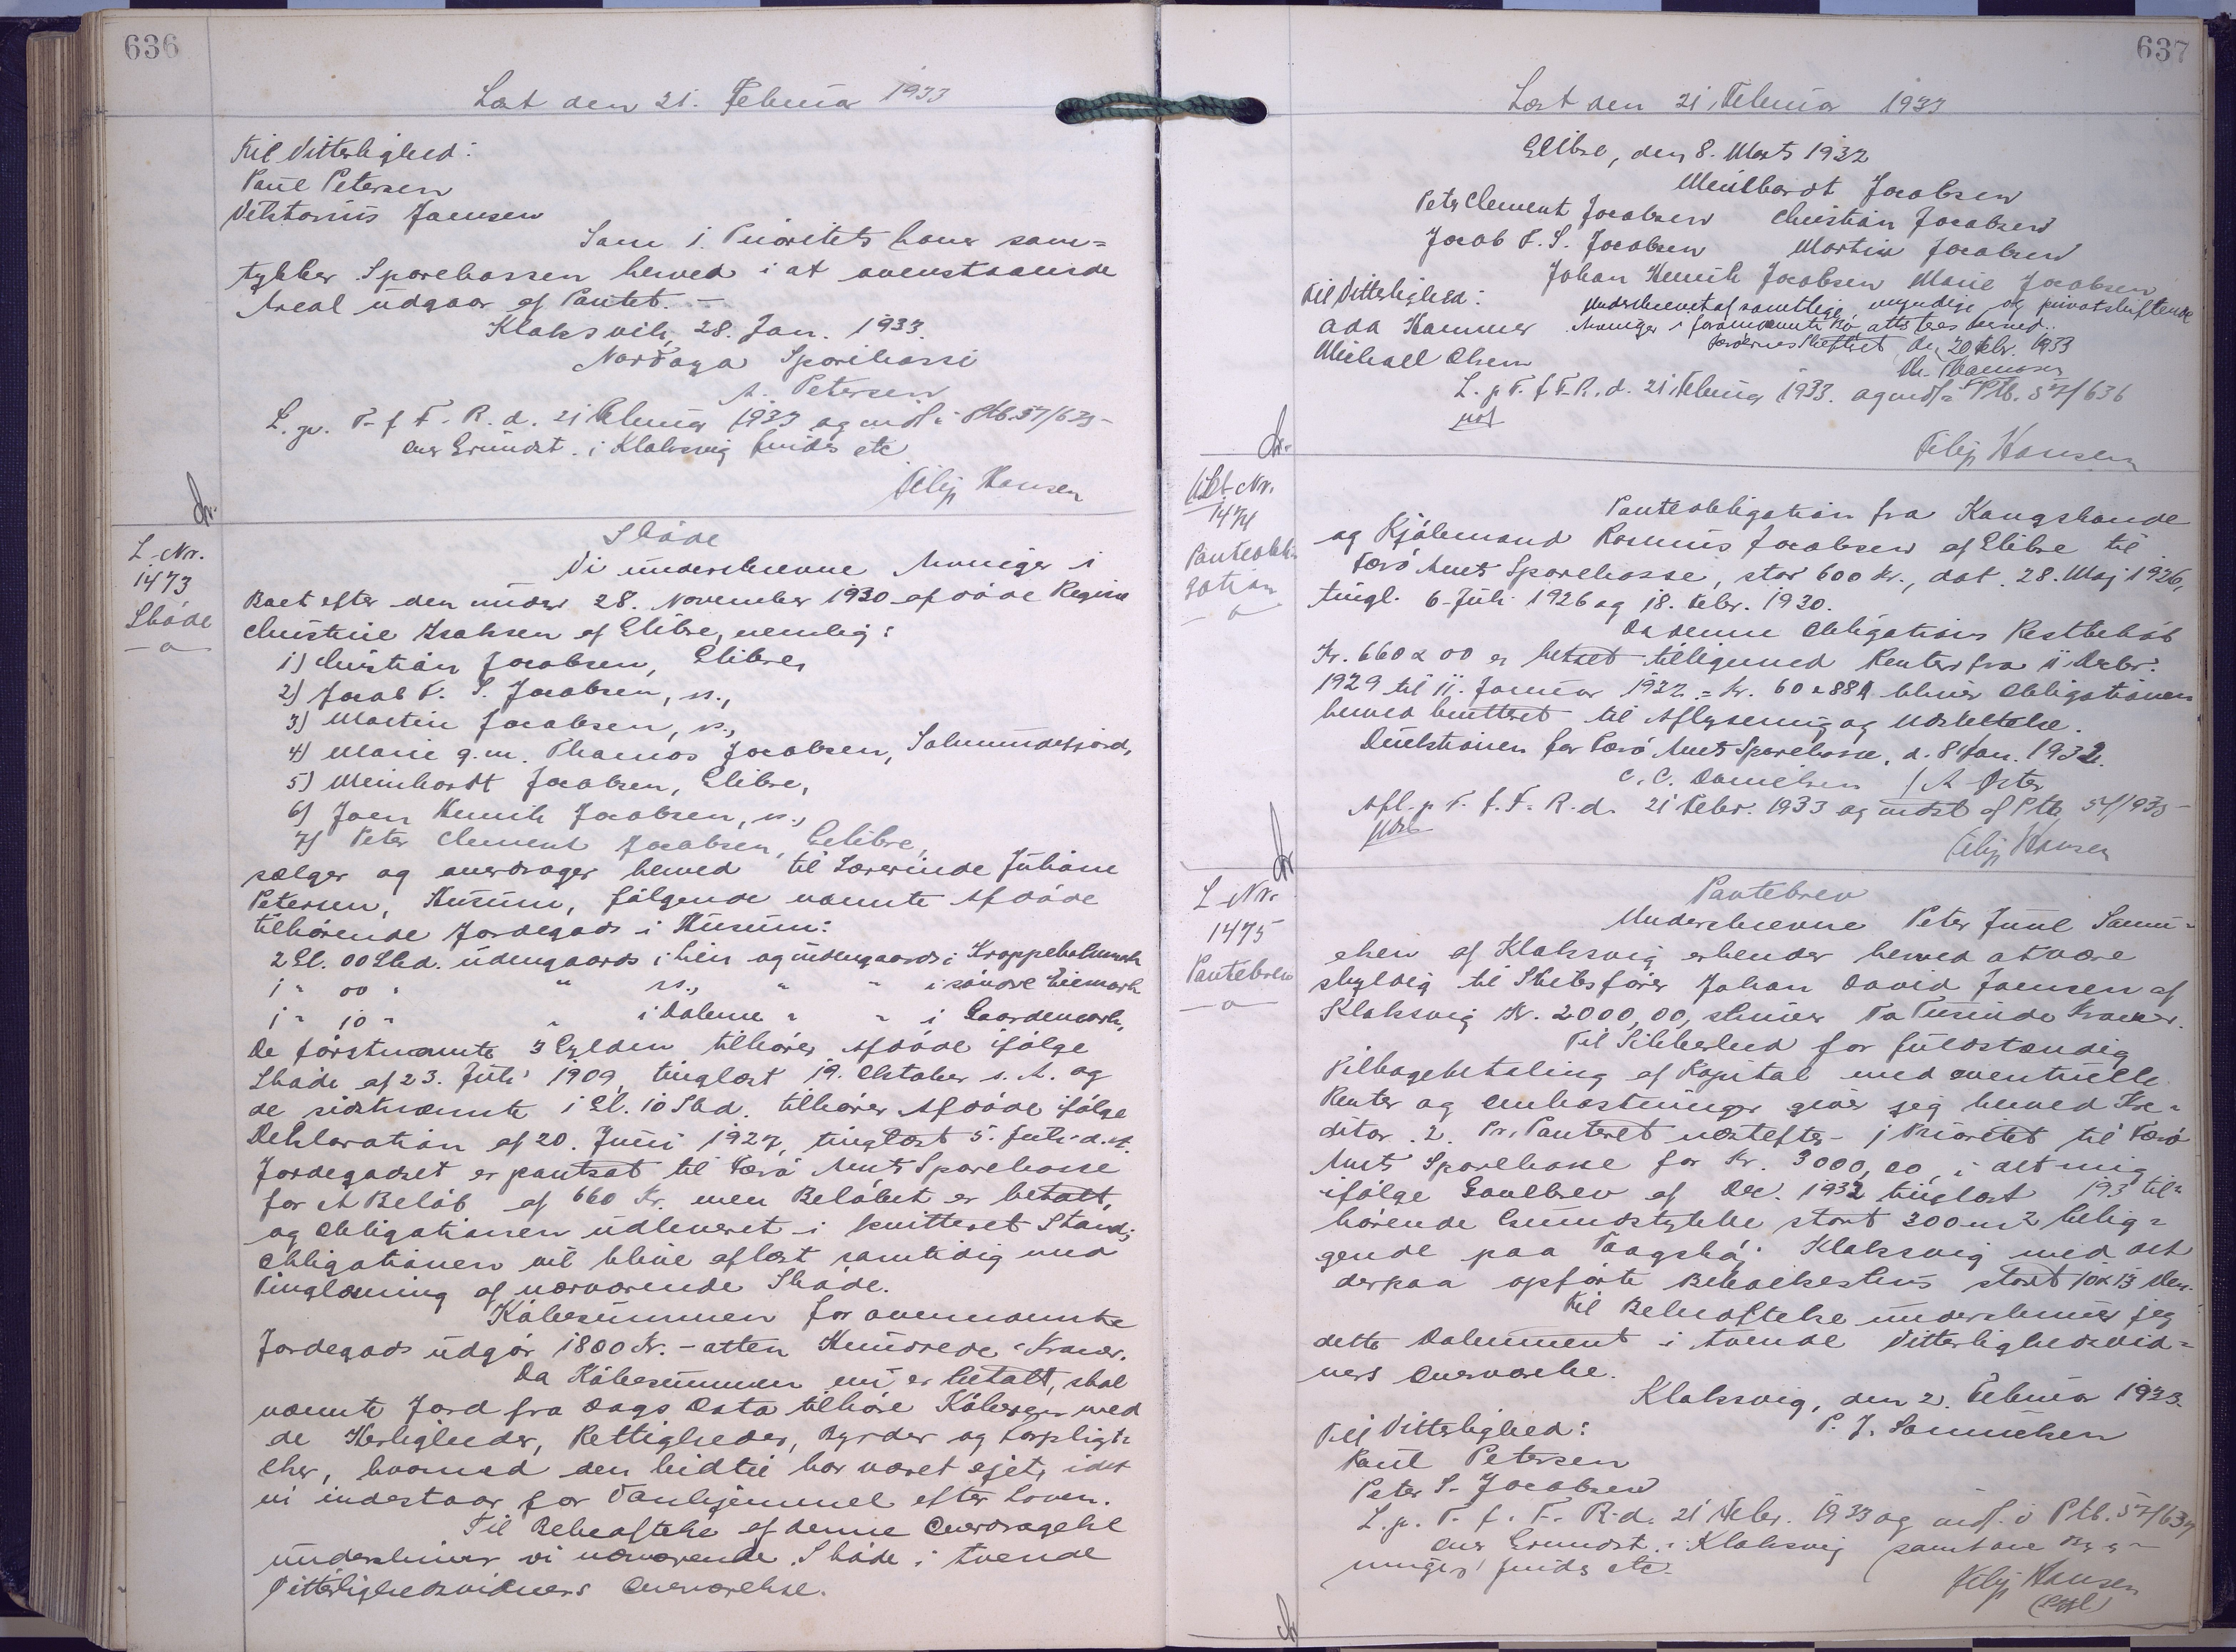 636
Læst den 21. Februar 1933
Til Vitterlighed:
Paul Petersen
Viktorius Joensen
Som 1. Prioritets haver sam=
tykker Sparekassen herved i at ovenstaaende
Areal udgaar af Pantet. –
Klaksvik, 28. Jan. 1933.
Norðoya Sparikassi
A. Petersen
L. p. T. f. F. R. d. 21 Februar 1933 og indf. i Ptb. 57/635 –
Grundst. i Klaksvig findes etc
Filip Hansen
L. Nr.
1473
Skøde
Skøde
Vi underskrevne Arvinger i
Boet efter den under 28. November 1930 afdøde Regine
Christine Isaksen af Glibre, nemlig:
1) Christian Jacobsen, Glibre,
2) Jacob F. S. Jacobsen, ss.,
3) Martin Jacobsen, ss.,
4) Marie g. m. Thomas Jacobsen, Salmundefjord,
5) Meinhardt Jacobsen, Glibre,
6) Joen Henrik Jacobsen, ss.,
7) Peter Clement Jacobsen, Glibre,
sælger og overdrager herved til Lærerinde Juliane
Petersen, Husum, følgende nævnte Afdøde
tilhørende Jordegods i Husum:
2 Gl. 00 Skd. udengaards i Lien og indengaards i Kroppeholmmark
1 " 00 " " ss., " " i søndre Liemark
1 " 10 " " i Dalene " " i Gaardemark,
De førstnævnte 3 Gylden tilhører Afdøde ifølge
Skøde af 23. Juli 1909, tinglæst 19. Oktober s. A. og
de sidstnævnte 1 Gl. 10 Skd. tilhører Afdøde ifølge
Deklaration af 20. Juni 1927, tinglæst 5. Juli d. A.
Jordegodset er pantsat til Færø Amts Sparekasse
for et Beløb af 660 Kr. men Beløbet er betalt,
og Obligationen udleveret i kvitteret Stand;
Obligationen vil blive aflæst samtidig med
Tinglæsning af nærværende Skøde.
Købesummen for ovennævnte
Jordegods udgør 1800 Kr. – atten Hundrede Kroner.
Da Købesummen nu er betalt, skal
nævnte Jord fra Dags Dato tilhøre Køberen med
de Herligheder, Rettigheder, Byrder og Forpligt=
elser, hvormed den hidtil har været ejet, idet
vi indestaar for Vanhjemmel efter Loven.
Til Bekræftelse af denne Overdragelse
underskriver vi nærværende Skøde i tvende
Vitterlighedsvidners Overværelse.
637
Læst den 21. Februar 1933
Glibre, den 8. Marts 1932
Meinhardt Jacobsen
Peter Clement Jacobsen Christian Jacobsen
Jacob F. S. Jacobsen Martin Jacobsen
Johan Henrik Jacobsen Marie Jacobsen
Til Vitterlighed:
Underskrevet af samtlige myndige og privatskiftende
Ada Hammer Arvinger i forannævnte Bo, attesteres herved.
Michael Olsen
Færøernes Skifteret, den 20 Febr. 1933
L. p. T. f. F. R. d. 21 Februar 1933. og indf. i Ptb. 57/636
Filip Hansen
L. Nr.
1474
Panteobli-
gation
Panteobligation fra Kongsbonde
og Kjøbmand Rasmus Jacobsen af Glibre til
Færø Amts Sparekasse, stor 600 Kr., dat. 28. Maj 1926,
tingl. 6. Juli 1926 og 18. Febr. 1930.
Da denne Obligations Restbeløb
Kr. 660 00 er betalt tilligemed Renter fra 11 Decbr.
1929 til 11. Januar 1932 = Kr. 60 88 bliver Obligationen
herved kvitteret til Aflysning og Udslettelse.
Direktionen for Færø Amts Sparekasse, d. 8 Jan. 1932.
C. C. Danielsen
Afl. p. T. f. F. R. d. 21 Febr. 1933 og udsl. af Ptb.
Filip Hansen
L. Nr.
1475
Pantebrev
Pantebrev
Underskrevne Peter Juul Samu=
elsen af Klaksvig erkender herved at være
skyldig til Skibsfører Johan David Joensen af
Klaksvig Kr. 2000,00, skriver To Tusinde Kroner.
Til Sikkerhed for fuldstændig
Tilbagebetaling af Kapital med eventuelle
Renter og Omkostninger giver jeg herved Kre=
ditor 2. Pr. Panteret næstefter 1 Prioritet til Færø
Amts Sparekasse for Kr. 3000,00, i det mig
ifølge Gavebrev af Dec. 1932 tinglæst 193 til=
hørende Grundstykke stort 300 m2 belig=
gende paa i Klaksvig med det
derpaa opførte Beboelseshus stort 10 x 13 Alen.
Til Bekræftelse underskriver jeg
dette Dokument i tvende Vitterlighedsvid=
ners Overværelse.
Klaksvig, den 2. Februar 1933.
Til Vitterlighed: P. J. Samuelsen
Paul Petersen
Peter S. Jacobsen
L. p. T. f. F. R. d. 21 Febr. 1933 og indf. i Ptb. 57/637
Grundst. i Klaksvig
findes etc.
Filip Hansen